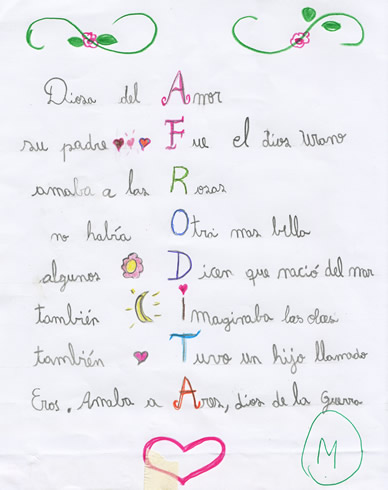 Diosa del Amor
su padre Fue el dios Urano
amaba a las Rosas
no había Otra mas bella
algunos Dicen que nació del mar
también imaginaba las olas
también Tuvo un hijo llamado
Eros. Amaba a Ares, dios de la Guerra
M